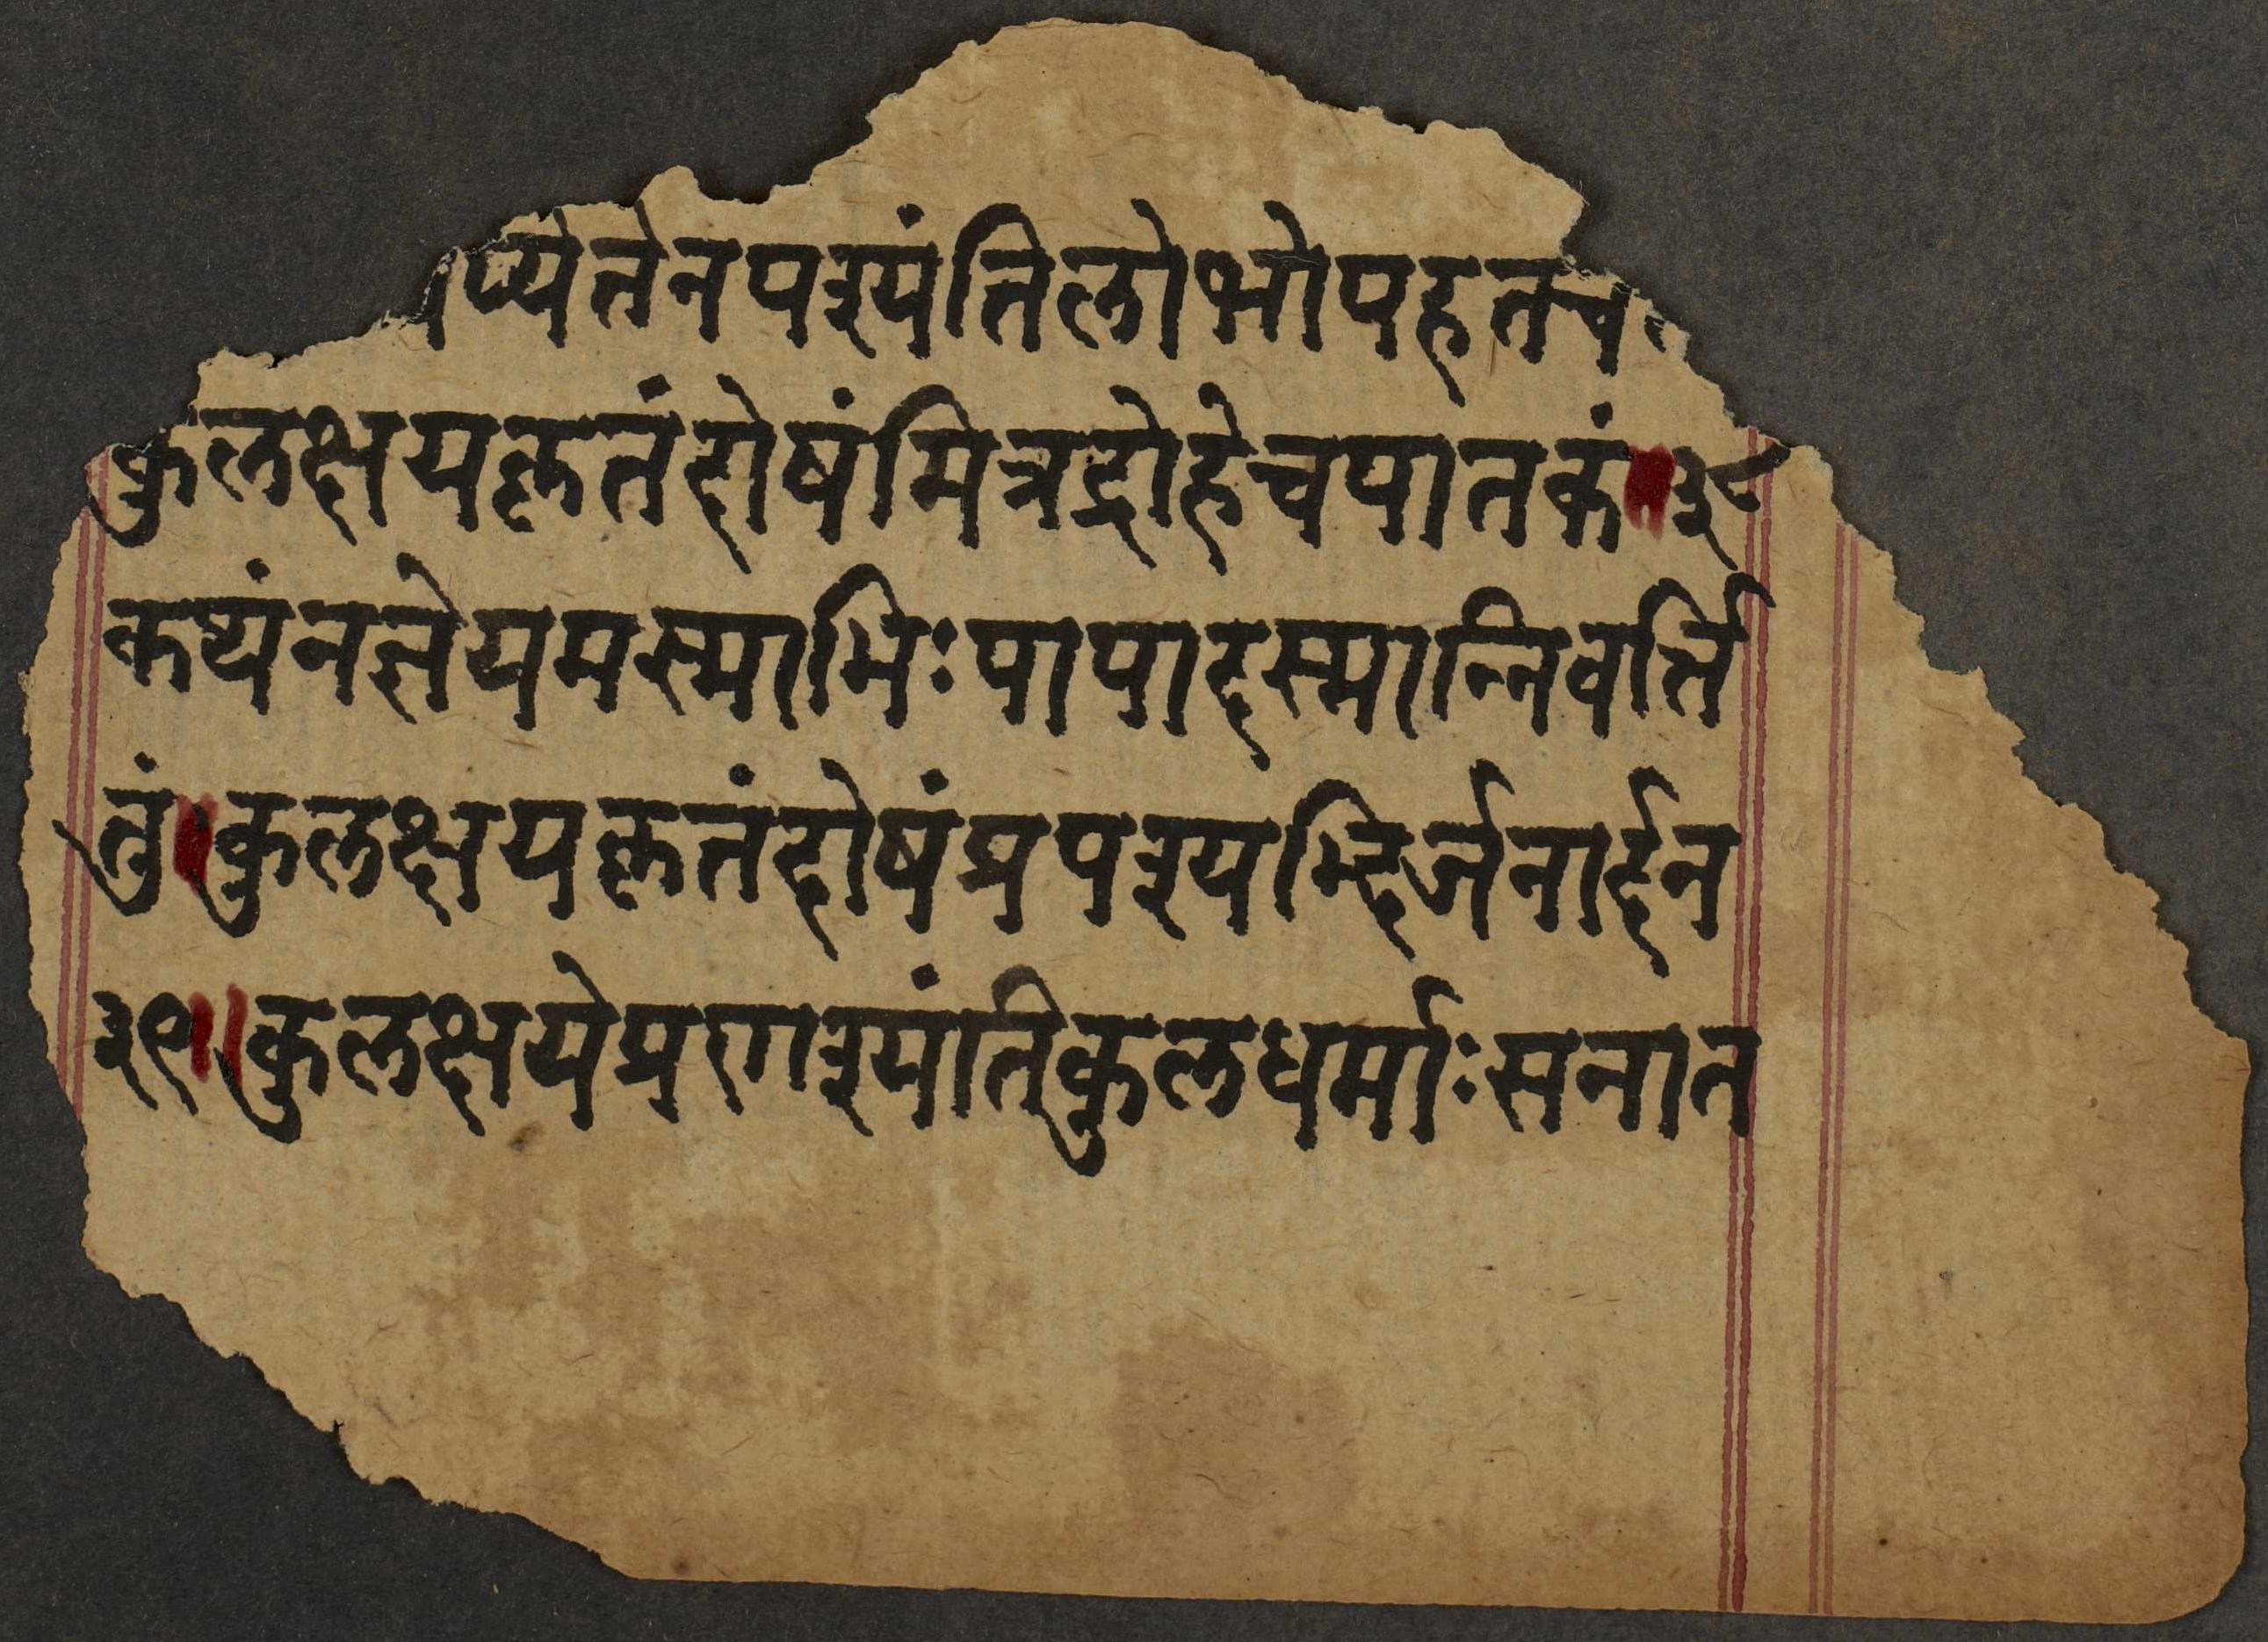 प्येतेनपश्यंतिलोभोपहतच
कुलक्षयकृतंदोषंमित्रद्रोहेचपातकं॥३८
कथंनज्ञेयमस्माभिःपापादस्मान्निवर्ति
तुं॥कुलक्षयकृतंदोषंप्रपश्यद्भिर्जनार्दन
३९॥कुलक्षयेप्रणश्यंतिकुलधर्माःसनात